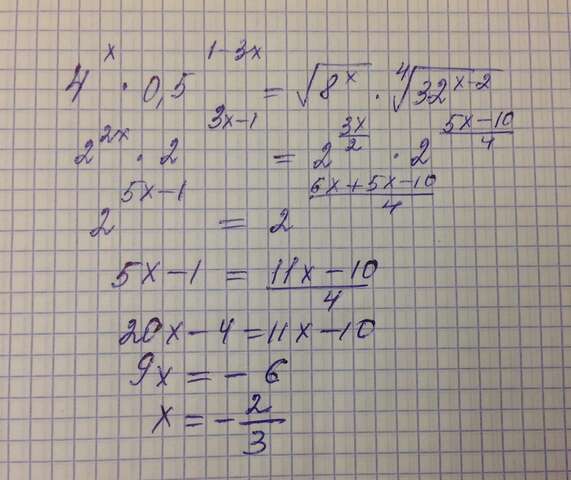 4^x · 0,5^(1-3x) = √(8^x) · ⁴√(32^(x-2))
2^(2x) · 2^(3x-1) = 2^(3x/2) · 2^((5x-10)/4)
2^(5x-1) = 2^((6x+5x-10)/4)
5x-1 = (11x-10)/4
20x-4=11x-10
9x = - 6
x = - 2/3